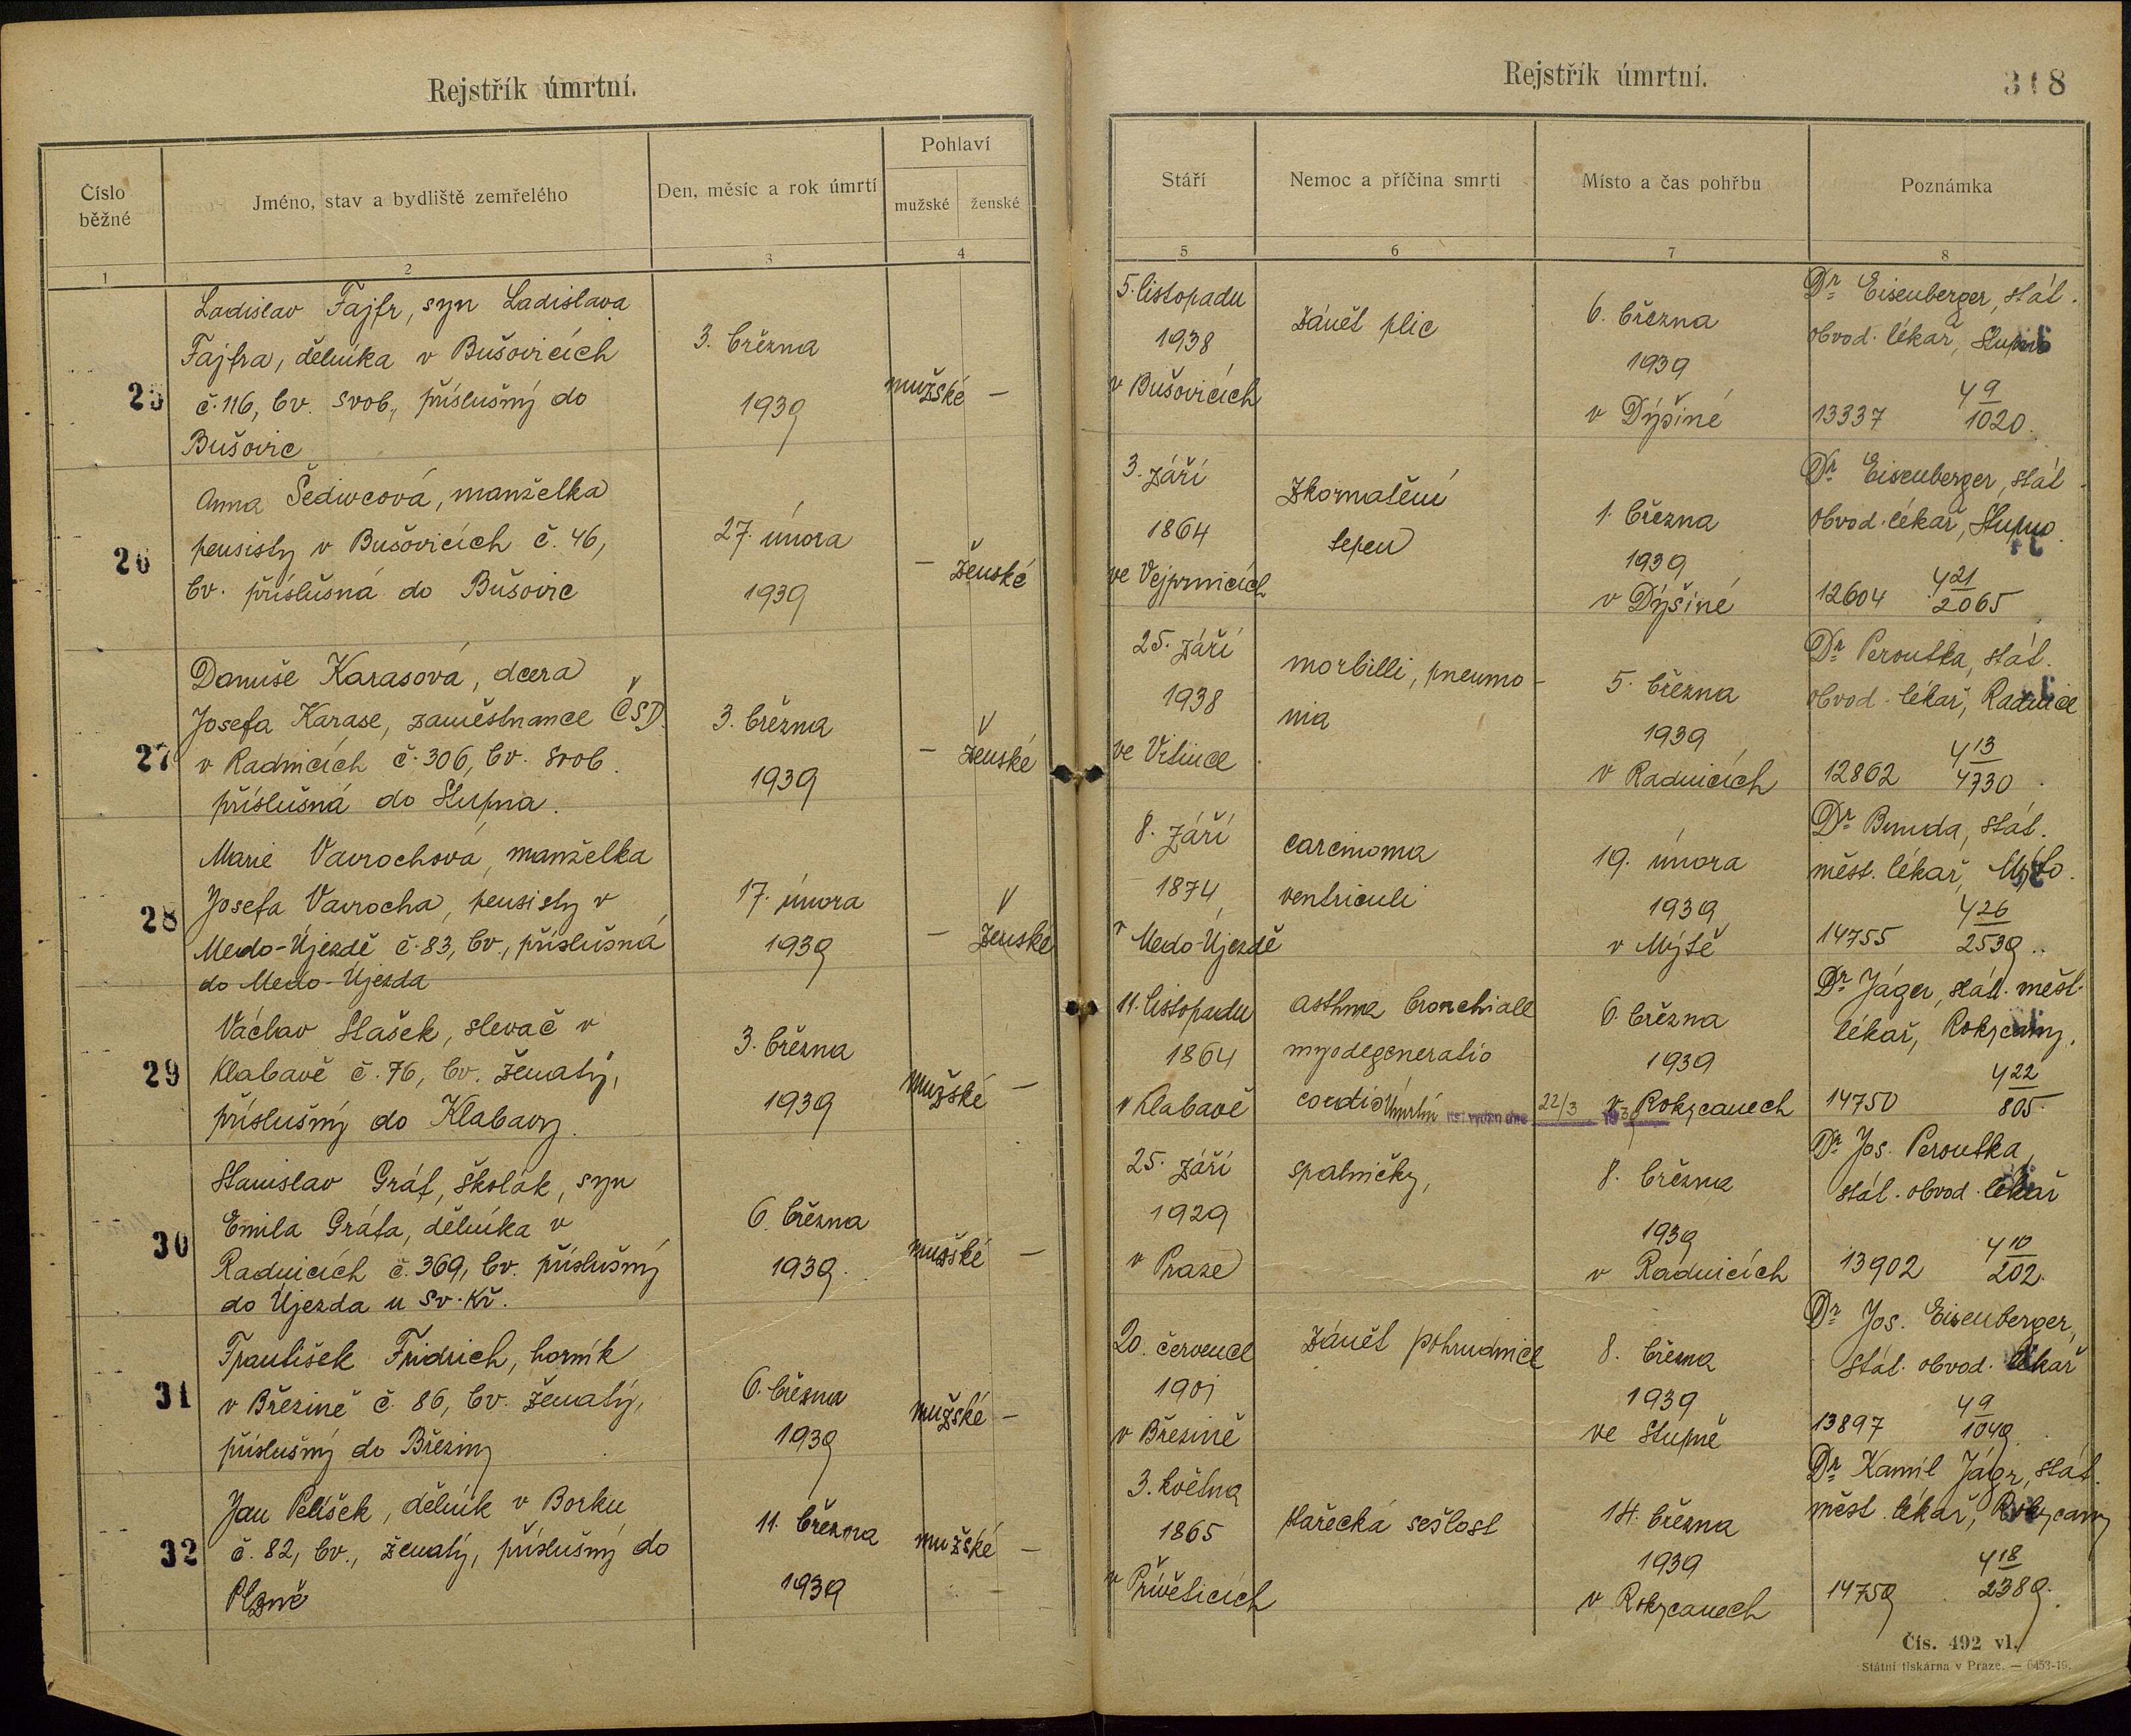 Rejstřík úmrtní.
Číslo běžné
Jméno, stav a bydliště zemřelého
Den, měsíc a rok úmrtí
Pohlaví
mužské
ženské
1
2
3
4
25
Ladislav Fajfr, syn Ladislava
Fajfra, dělníka v Bušovicích
č. 116, bv. svob, příslušný do
Bušovic
3. března
1939
mužské –
26
Anna Šedivcová, manželka
pensisty v Bušovicích č. 46,
bv. příslušná do Bušovic
27. února
1939
– ženské
27
Danuše Karasová, dcera
Josefa Karase, zaměstnance ČSD
v Radnicích č. 306, bv. svob.
příslušná do Stupna.
3. března
1939
– ženské
28
Marie Vavrochová, manželka
Josefa Vavrocha, pensisty v
Medo-Újezdě č. 83, bv., příslušná
do Medo-Újezda
17. února
1939
– ženské
29
Václav Stašek, slevač v
Klabavě č. 76, bv. ženatý,
příslušný do Klabavy.
3. března
1939
mužské –
30
Stanislav Gráf, školák, syn
Emila Gráfa, dělníka v
Radnicích č. 369, bv. příslušný
do Újezda u Sv. Kř.
6. března
1939.
mužské –
31
František Fridrich, horník
v Březině č. 86, bv. ženatý,
příslušný do Březiny
6. března
1939
mužské –
32
Jan Pelíšek, dělník v Borku
č. 82, bv., ženatý, příslušný do
Plzně
11. března
1939
mužské –
Rejstřík úmrtní.
318
Stáří
Nemoc a příčina smrti
Místo a čas pohřbu
Poznámka
5
6
7
8
5. listopadu
1938
v Bušovicích
Zánět plic
6. března
1939
v Dýšině
Dr Eisenberger, stát.
obvod. lékař, Stupno
13337 49/1020.
3. září
1864
ve Vejprnicích
Zkornatění
tepen
1. března
1939
v Dýšině
Dr Eisenberger, stát
obvod. lékař, Stupno.
12604 421/2065
25. září
1938
ve Vitince
morbilli, pneumo-
nia
5. března
1939
v Radnicích
Dr Peroutka, stát.
obvod. lékař, Radnice
12862 413/4730
8. září
1874
v Medo-Újezdě
carcinoma
ventriculi
19. února
1939
v Mýtě
Dr Bunda, stát.
měst. lékař, Mýto.
14755 426/2539
11. listopadu
1864
v Klabavě
asthma bronchiale
myodegeneratio
cordis Úmrtní list vydán dne 22/3 1939
6. března
1939
v Rokycanech
Dr Jáger, stát. měst.
lékař, Rokycany.
14750 422/805.
25. září
1929
v Praze
spalničky,
8. března
1939
v Radnicích
Dr Jos. Peroutka,
stát. obvod. lékař
13902 410/202.
20. července
1901
v Březině
Zánět pohrudnice
8. března
1939
ve Stupně
Dr Jos. Eisenberger,
stát. obvod. lékař
13897 49/1049.
3. května
1865
v Přívěticích
stařecká sešlost
14. března
1939
v Rokycanech
Dr Kamil Jágr, stát.
měst. lékař, Rokycany
14759 418/2389.
Čís. 492 vl.
Státní tiskárna v Praze. — 6453-19.